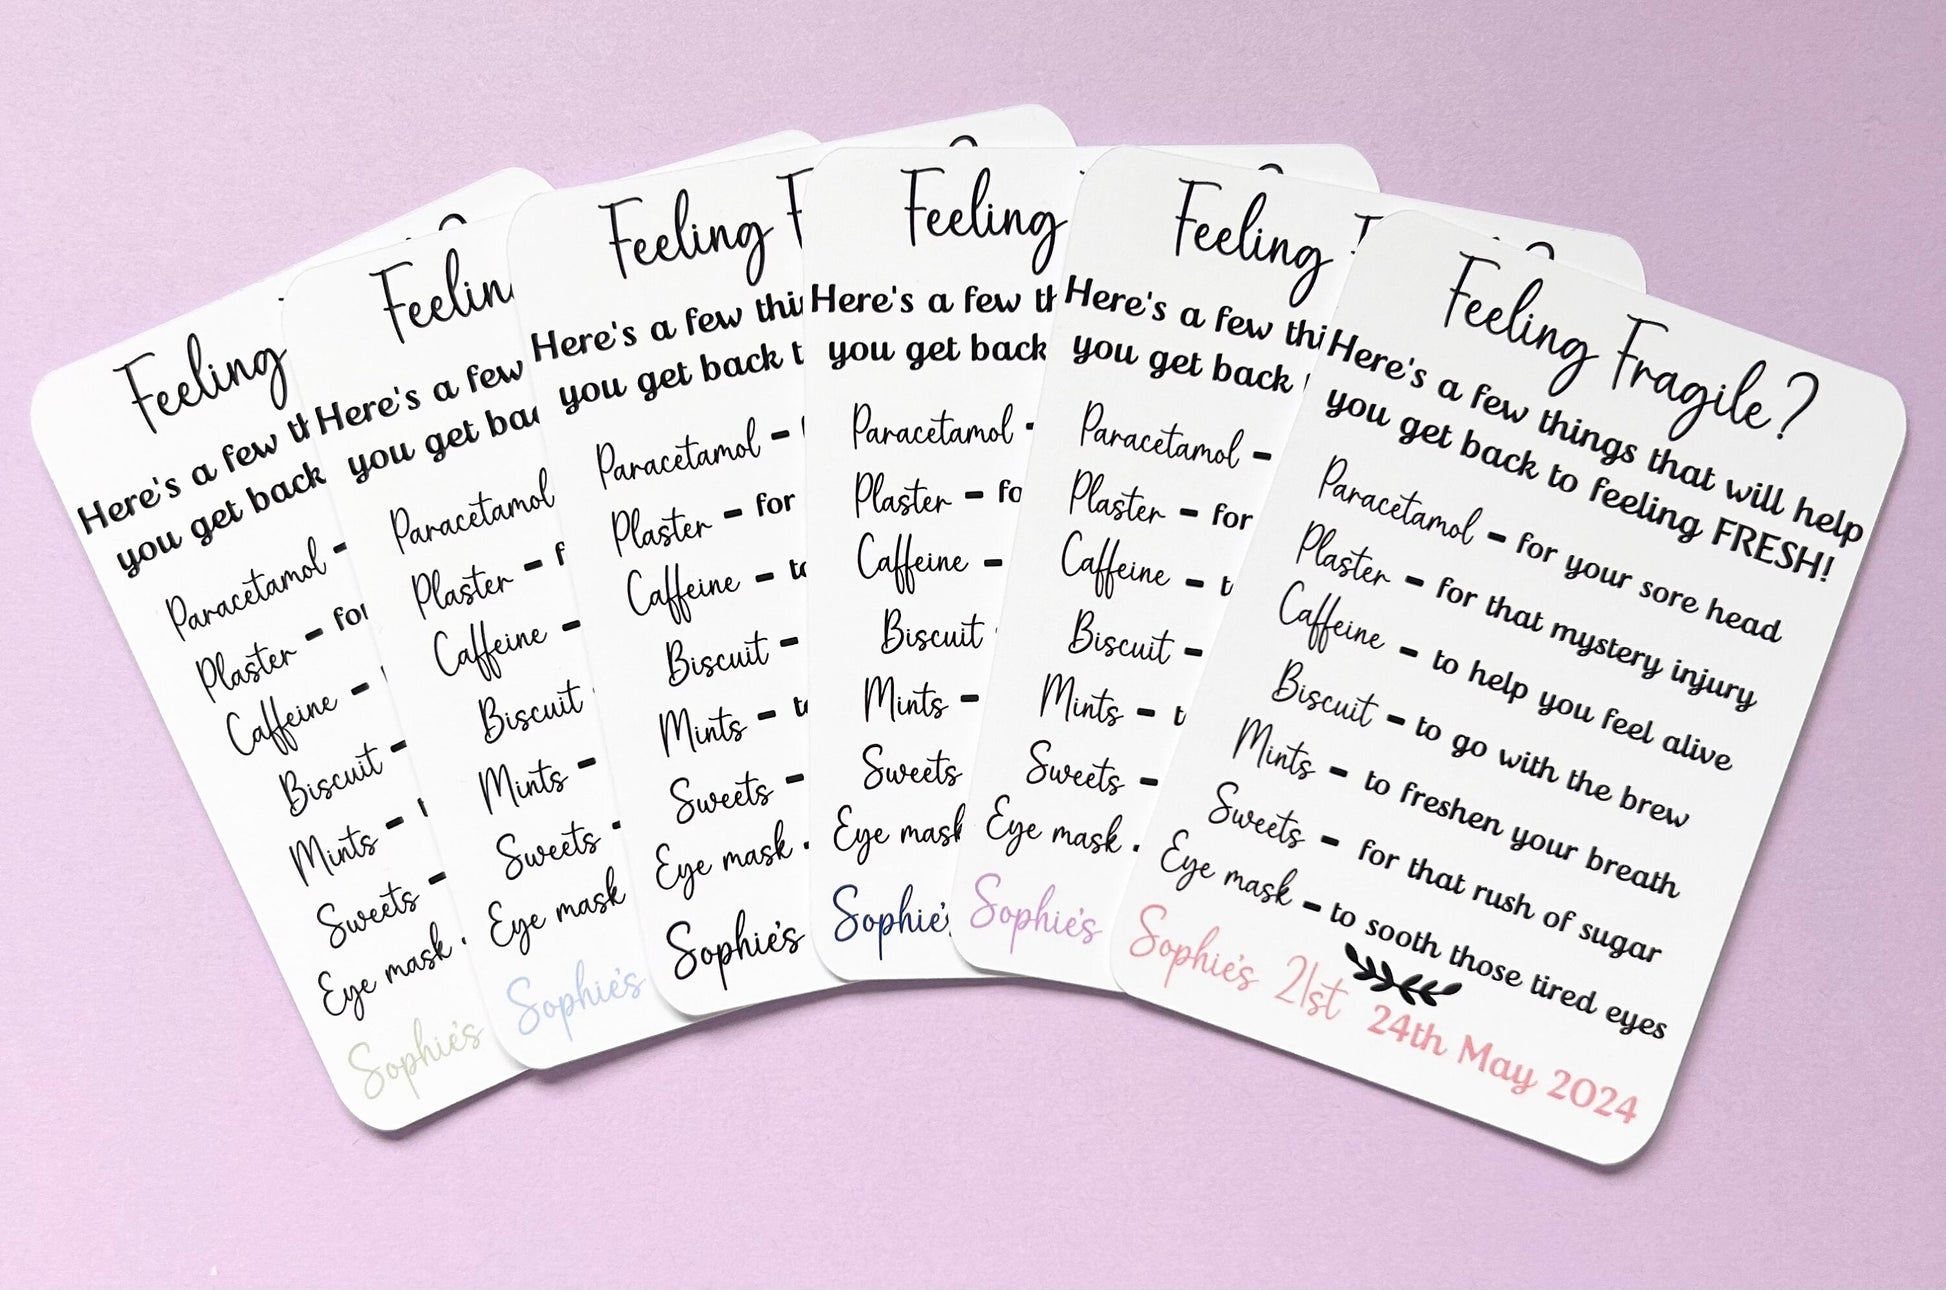 Feeling
Here's a few
you get back
Paracetamol -
Plaster - for
Caffeine -
Biscuit -
Mints -
Sweets -
Eye mask
Sophie's
Feeling
Here's a few
you get
Paracetamol
Plaster -
Caffeine -
Biscuit
Mints -
Sweets
Eye mask
Sophie's
Feeling
Here's a few
you get back
Paracetamol -
Plaster - for
Caffeine -
Biscuit -
Mints -
Sweets -
Eye mask
Sophie's
Feeling
Here's a few
you get back
Paracetamol
Plaster -
Caffeine -
Biscuit
Mints -
Sweets
Eye mask
Sophie's
Feeling
Here's a few
you get back
Paracetamol -
Plaster - for
Caffeine -
Biscuit -
Mints -
Sweets -
Eye mask
Sophie's
Feeling Fragile?
Here's a few things that will help
you get back to feeling FRESH!
Paracetamol - for your sore head
Plaster - for that mystery injury
Caffeine - to help you feel alive
Biscuit - to go with the brew
Mints - to freshen your breath
Sweets - for that rush of sugar
Eye mask - to sooth those tired eyes
Sophie's 21st 24th May 2024